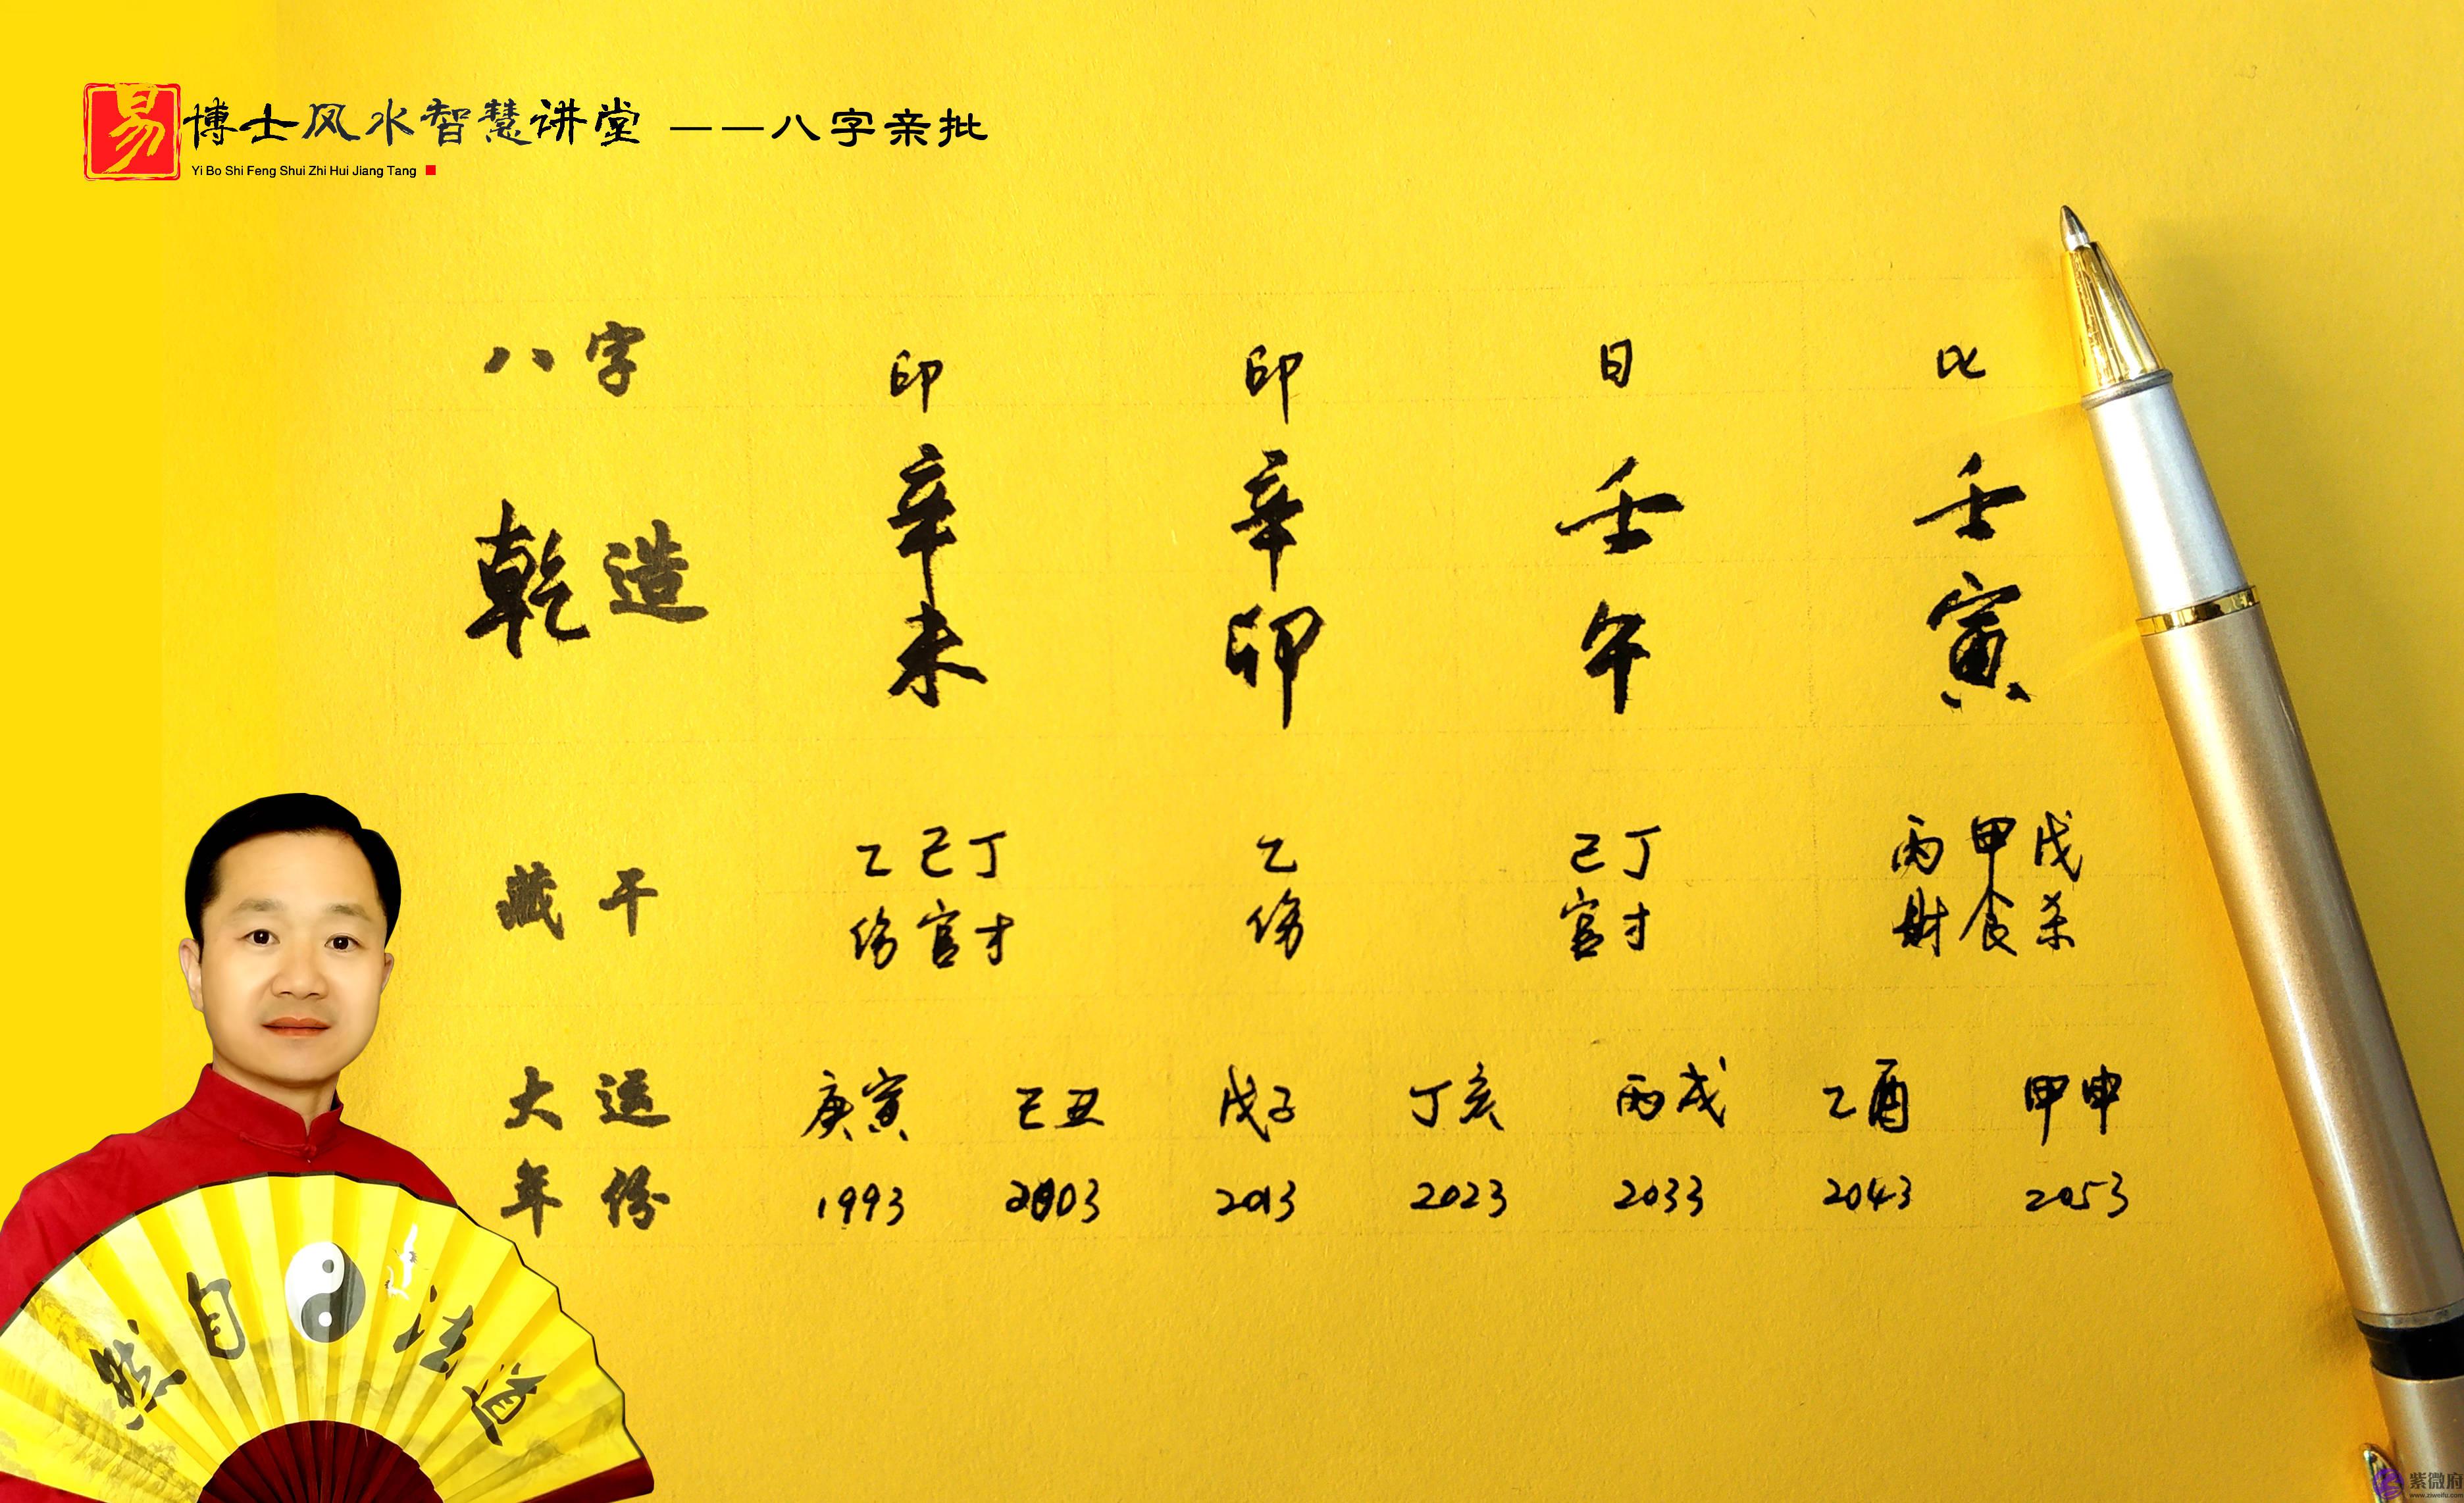 易博士风水智慧讲堂 ——八字亲批
Yi Bo Shi Feng Shui Zhi Hui Jiang Tang
八字 印 印 日 比
乾造 辛未 辛卯 壬午 壬寅
藏干 乙己丁 乙 己丁 丙甲戊
伤官才 伤 官才 财食杀
大运 庚寅 己丑 戊子 丁亥 丙戌 乙酉 甲申
年份 1993 2003 2013 2023 2033 2043 2053
道法自然
紫微府
www.ziweifu.com